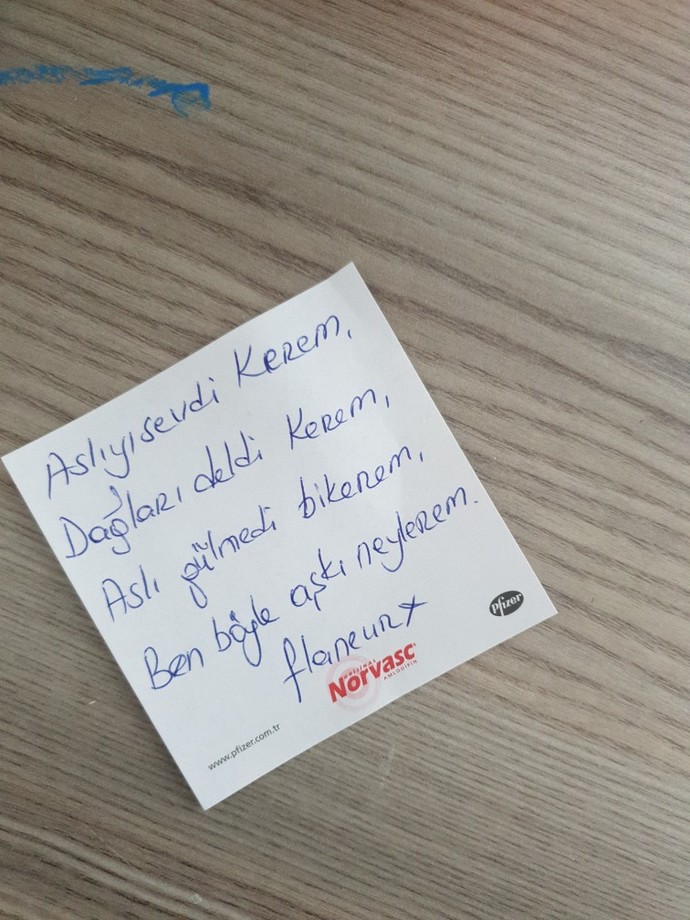 Aslıyı sevdi Kerem,
Dağları deldi Kerem,
Aslı gülmedi bikerem,
Ben böyle aşkı neylerem.
flaneurx
ORİJİNAL
Norvasc®
AMLODİPİN
Pfizer
www.pfizer.com.tr